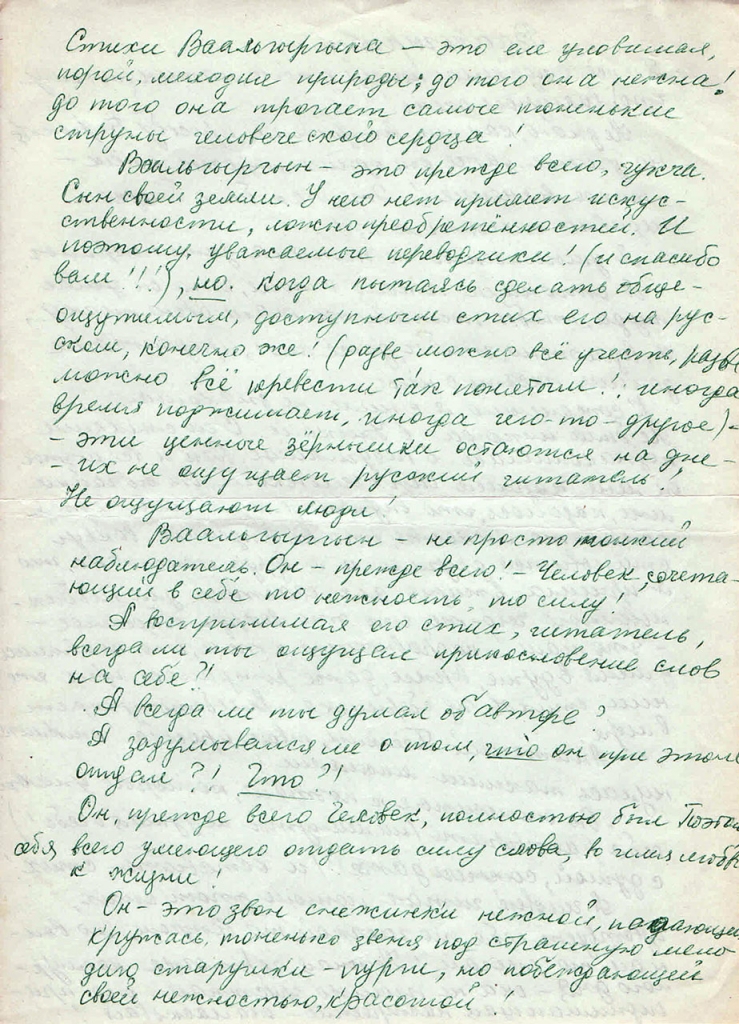 Стихи Ваальгыргына – это еле уловимая,
порой, мелодия природы; до того она нежна!
до того она трогает самые тоненькие
струны человеческого сердца!
Ваальгыргын – это прежде всего, чукча.
Сын своей земли. У него нет прикрас искус-
ственности, ложнопреобретённостей. И
поэтому, уважаемые переводчики! (и спасибо
вам!!!), но. когда пытаясь сделать обще-
ощутимым, доступным стих его на рус-
ском, конечно же! (разве можно всё учесть, разве
можно всё перевести так понятым!; иногда
время поджимает, иногда чего-то-другое) -
- эти ценные зёрнышки остаются на дне -
- их не ощущает русский читатель!
Не ощущают люди!
Ваальгыргын – не просто тонкий
наблюдатель. Он – прежде всего! – Человек, сочета-
ющий в себе то нежность, то силу!
А воспринимая его стих, читатель,
всегда ли ты ощущал прикосновение слов
на себе?!
А всегда ли ты думал об авторе?
А задумывался ли о том, что он при этом
отдал?! Что?!
Он, прежде всего Человек, полностью был Поэтом
себя всего умеющего отдать силу слова, во имя любви
к жизни!
Он – это звон снежинки нежной, падающей
кружась, тоненько звеня под страшную мело-
дию старушки – пурги, но побеждающей
своей нежностью, красотой!